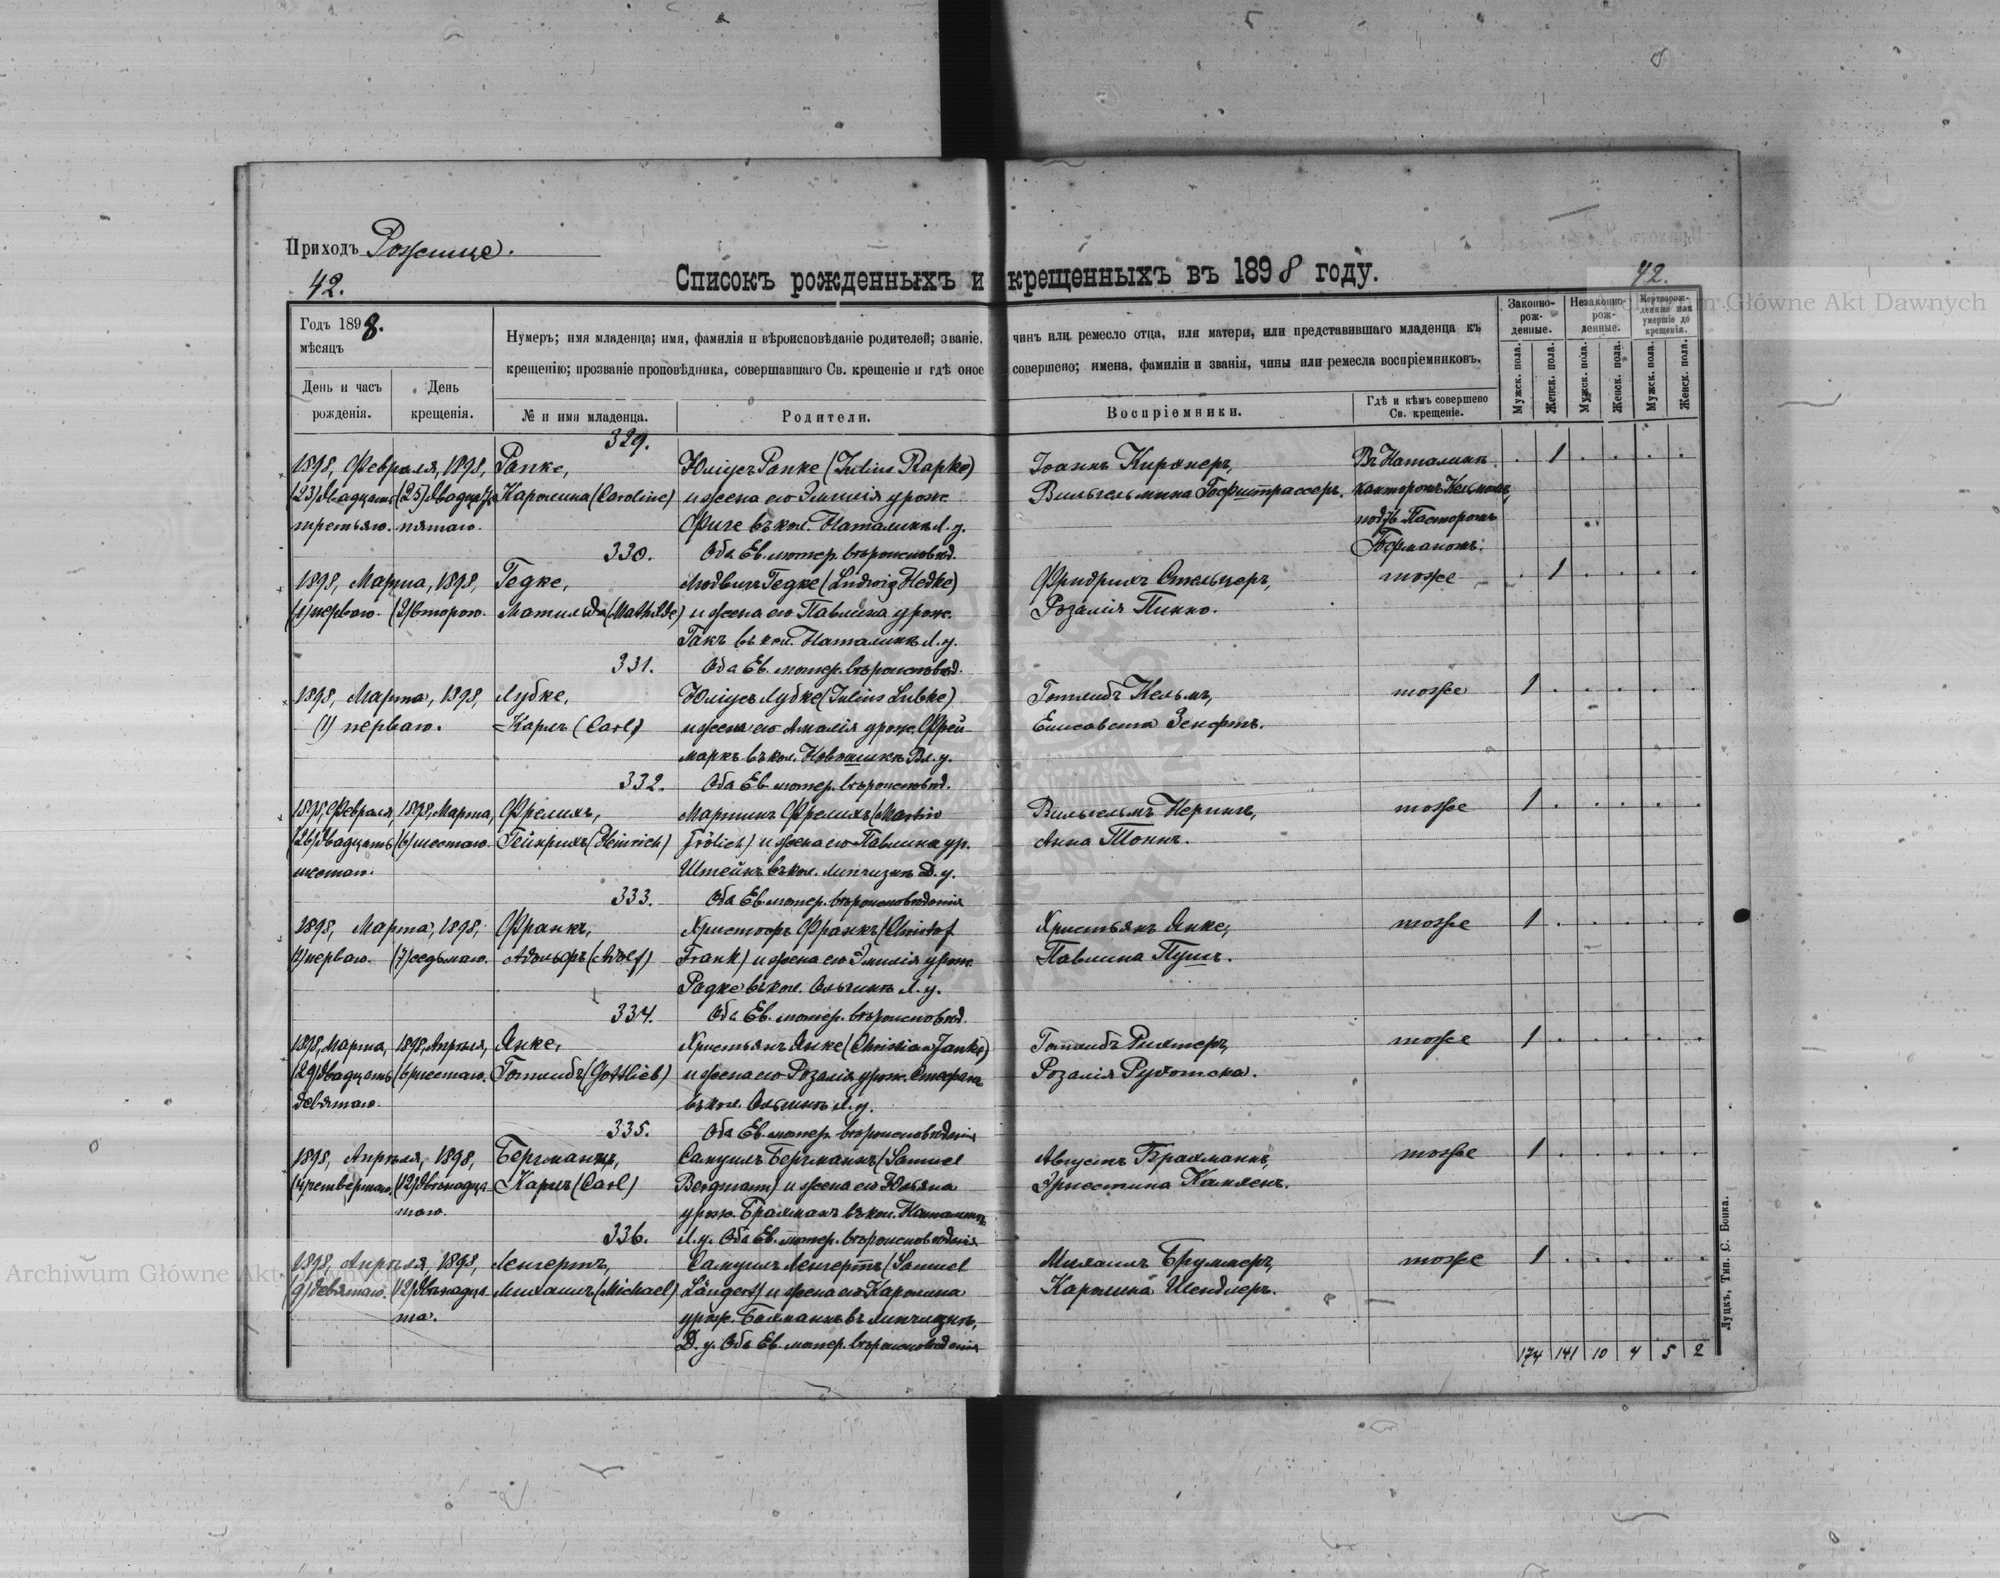 Приходъ Рожище.
42.
Списокъ рожденныхъ и крещенныхъ въ 1898 году.
42.
Archiwum Główne Akt Dawnych
Годъ 1898.
мѣсяцъ
День и часъ рожденія.
День крещенія.
Нумеръ; имя младенца; имя, фамилія и вѣроисповѣданіе родителей; званіе, чинъ или ремесло отца, или матери, или представившаго младенца къ
крещенію; прозваніе проповѣдника, совершавшаго Св. крещеніе и гдѣ оное совершено; имена, фамиліи и званія, чины или ремесла воспріемниковъ.
№ и имя младенца.
Родители.
Воспріемники.
Гдѣ и кѣмъ совершено Св. крещеніе.
Законно-рож-денные.
Незаконно-рож-денные.
Мертворож-денные или умершіе до крещенія.
Мужск. пола.
Женск. пола.
Мужск. пола.
Женск. пола.
Мужск. пола.
Женск. пола.
329.
1898, Февраля, 1898, Рапке, Юліусъ Рапке (Julius Rapke) Іоаннъ Кирхнеръ, Въ Наталинѣ 1
(23) двадцать (25) двадцать Каролина (Caroline) и жена его Эмилія урож. Вильгельмина Гофштрассеръ. канторомъ Кельмомъ,
третьяго. пятаго. Фиге въ кол. Наталинѣ Л. у. подтв. Пасторомъ
330. Оба Ев. лютер. вѣроисповѣд. Германомъ.
1898, Марта, 1898, Гедке, Людвигъ Гедке (Ludwig Hedke) Фридрихъ Стельцеръ, тоже 1
(1) перваго. (2) второго. Матильда (Mathilde) и жена его Павлина урож. Розалія Пинно.
Гакъ въ кол. Наталинѣ Л. у.
331. Оба Ев. лютер. вѣроисповѣд.
1898, Марта, 1898, Лубке, Юліусъ Лубке (Julius Lubke) Готлибъ Кельмъ, тоже 1
(1) перваго. Карлъ (Carl) и жена его Амалія урож. Фрей- Елисавета Зенфтъ.
маркъ въ кол. Новошикѣ Вл. у.
332. Оба Ев. лютер. вѣроисповѣд.
1898, Февраля, 1898, Марта, Фрелихъ, Мартинъ Фрелихъ (Martin Вильгельмъ Нерингъ, тоже 1
(26) двадцать (6) шестаго. Гейнрихъ (Heinrich) Frölich) и жена его Павлина ур. Анна Тоннъ.
шестаго. Штейнъ въ кол. Липчизнѣ Д. у.
333. Оба Ев. лютер. вѣроисповѣданія
1898, Марта, 1898, Франкъ, Христофъ Франкъ (Christof Христьянъ Янке, тоже 1
(1) перваго. (7) седьмаго. Адольфъ (Adolf) Frank) и жена его Эмилія урож. Павлина Пушъ.
Радке въ кол. Ольгинѣ Л. у.
334. Оба Ев. лютер. вѣроисповѣд.
1898, Марта, 1898, Апрѣля, Янке, Христьянъ Янке (Christian Janke) Готлибъ Рихтеръ, тоже 1
(29) двадцать (6) шестаго. Готлибъ (Gottlieb) и жена его Розалія урож. Стефанъ Розалія
девятаго. въ кол. Ольгинѣ Л. у.
335. Оба Ев. лютер. вѣроисповѣданія
1898, Апрѣля, 1898, Бергманъ, Самуилъ Бергманъ (Samuel Августъ Брахманнъ, тоже 1
(4) четвертаго. (12) двѣнадца- Карлъ (Carl) Bergmann) и жена его Юльяна Эрнестина
таго. урож. Брахманъ въ кол. Наталинѣ
336. Л. у. Оба Ев. лютер. вѣроисповѣданія
1898, Апрѣля, 1898, Ленгертъ, Самуилъ Ленгертъ (Samuel Михаилъ Бруммеръ, тоже 1
(9) девятаго. (12) двѣнадца- Михаилъ (Michael) Längert) и жена его Каролина Каролина Шендлеръ.
та. урож. въ Липчизнѣ,
Д. у. Оба Ев. лютер. вѣроисповѣданія
174 141 10 4 5 2
Луцкъ, Тип. С. Бонка.
Archiwum Główne Akt Dawnych